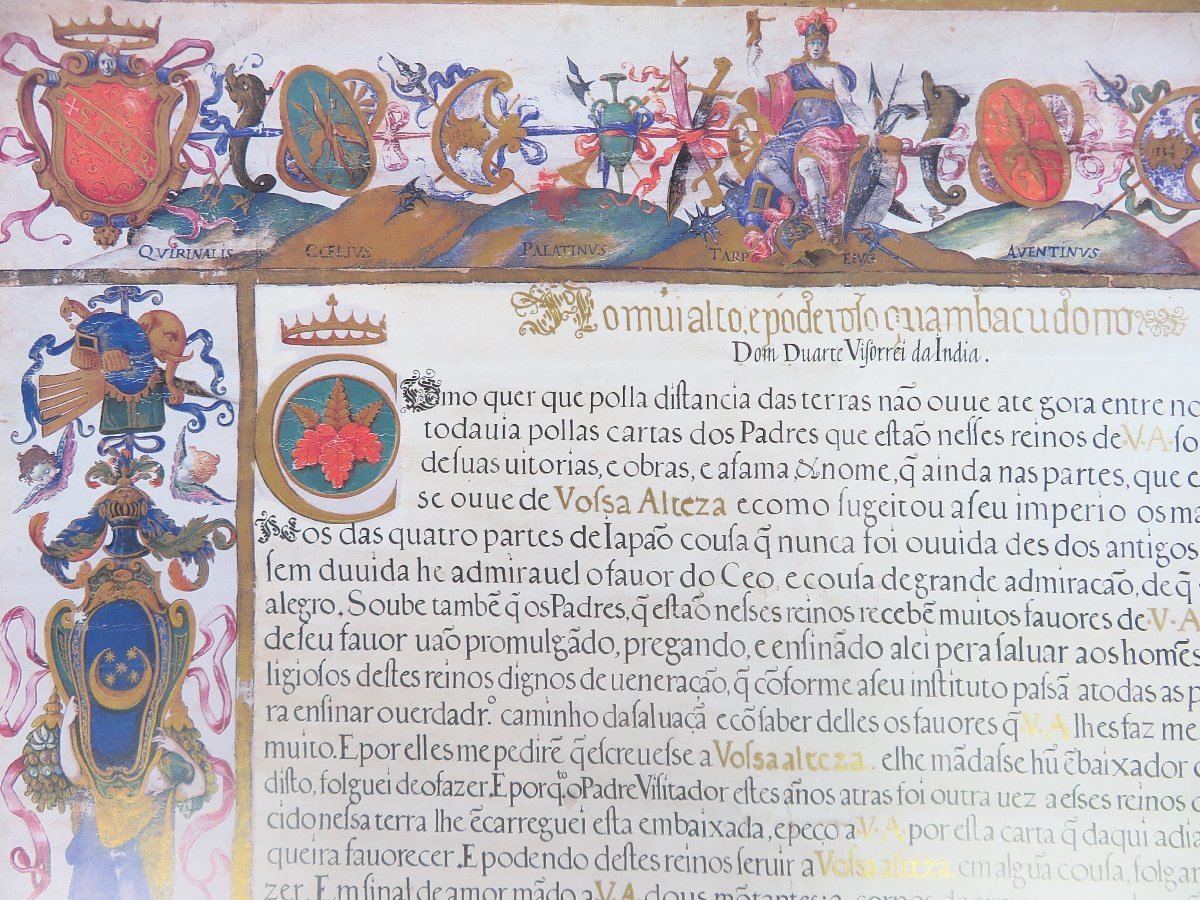 S P Q R
QVIRINALIS CŒLIVS PALATINVS TARPEIVS AVENTINVS
Ao mũi alto, e poderoso quambacudono
Dom Duarte Visorrei da India.
Como quer que polla distancia das terras não ouue ate gora entre no
todauia pollas cartas dos Padres que estaõ nesses reinos de V.A. so
de suas uitorias, e obras, e a fama, & nome, q̃ ainda nas partes, que e
se ouue de Vossa Alteza e como sugeitou a seu imperio os ma
os das quatro partes de Iapaõ cousa q̃ nunca foi ouuida des dos antigos
sem duuida he admirauel o fauor do Ceo, e cousa de grande admiracaõ, de q̃
alegro. Soube tambẽ q̃ os Padres, q̃ estaõ nesses reinos recebẽ muitos fauores de V.A
de seu fauor uaõ promulgãdo, pregando, e ensinãdo a lei pera saluar aos homẽs
ligiosos destes reinos dignos de ueneraçaõ, q̃ cõforme a seu instituto passã a todas as p
ra ensinar o uerdadr.º caminho da saluaçã e cõ saber delles os fauores q̃ V.A lhes faz me
muito. E por elles me pedirẽ q̃ escreuesse a Vossa alteza. e lhe mãdasse hũ ẽbaixador
disto, folguei de o fazer. E porq̃.to o Padre Visitador estes años atras foi outra uez a esses reinos
cido nessa terra lhe ẽcarreguei esta embaixada, e peco a V.A por esta carta q̃ daqui adia
queira fauorecer. E podendo destes reinos seruir a Vossa alteza, em algũa cousa, folgar
zer. Em sinal de amor mãdo a V.A dous mõtantes